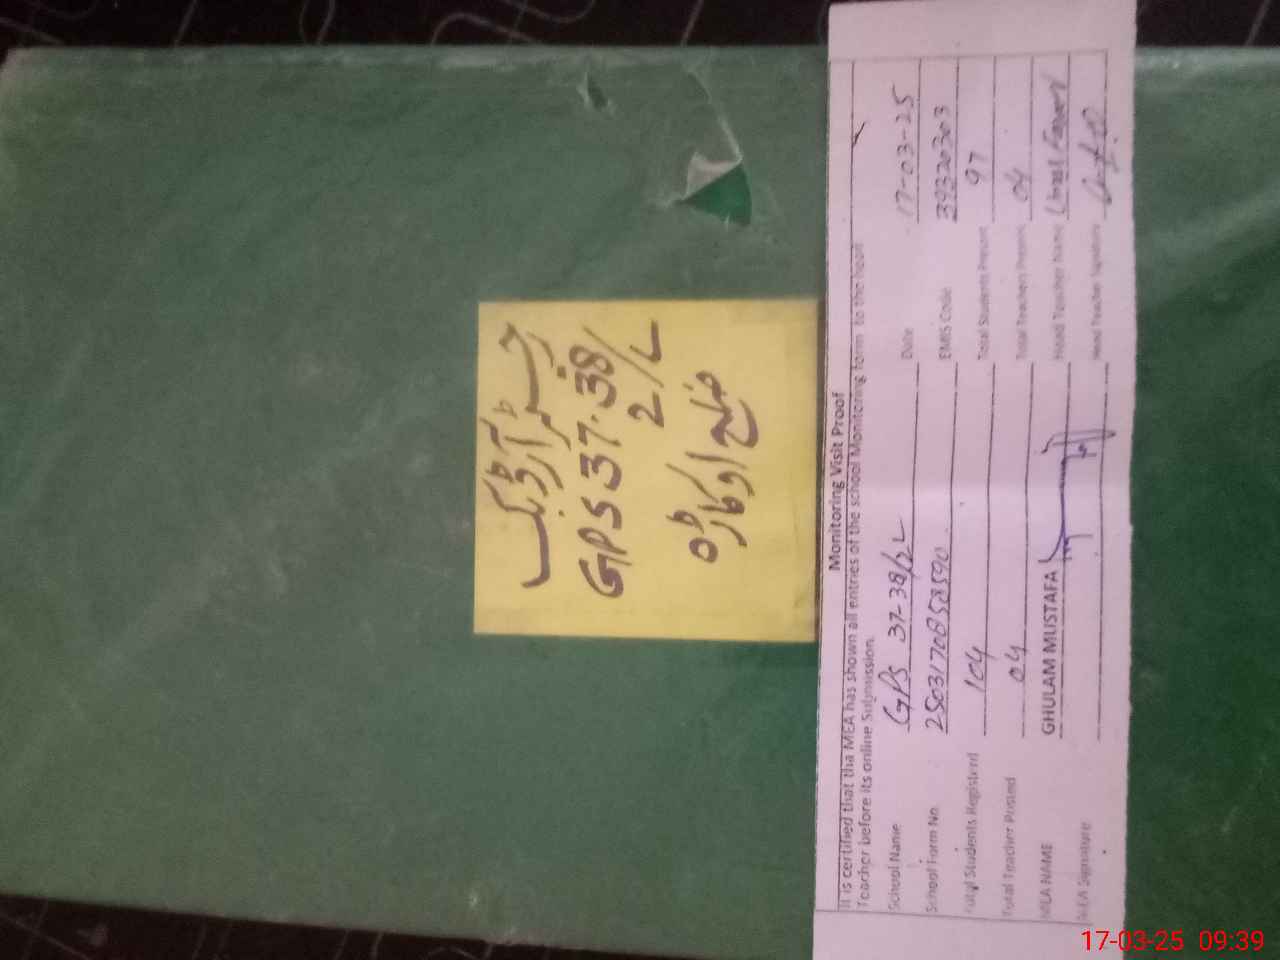 رجسٹر آرڈر بک
GPS 37.38/
2/L
ضلع اوکاڑہ
Monitoring Visit Proof
It is certified that tha MEA has shown all entries of the school Monitoring form to the head
Teacher before its online Submission.
School Name GPS 37-38/2L Date 17-03-25
School Form No. 250317085859 EMIS Code 39320303
Total Students Registerd 104 Total Students Present 97
Total Teacher Posted 04 Total Teachers Present 04
MEA NAME GHULAM MUSTAFA Head Teacher Name
MEA Signature Head Teacher Signature
17-03-25 09:39